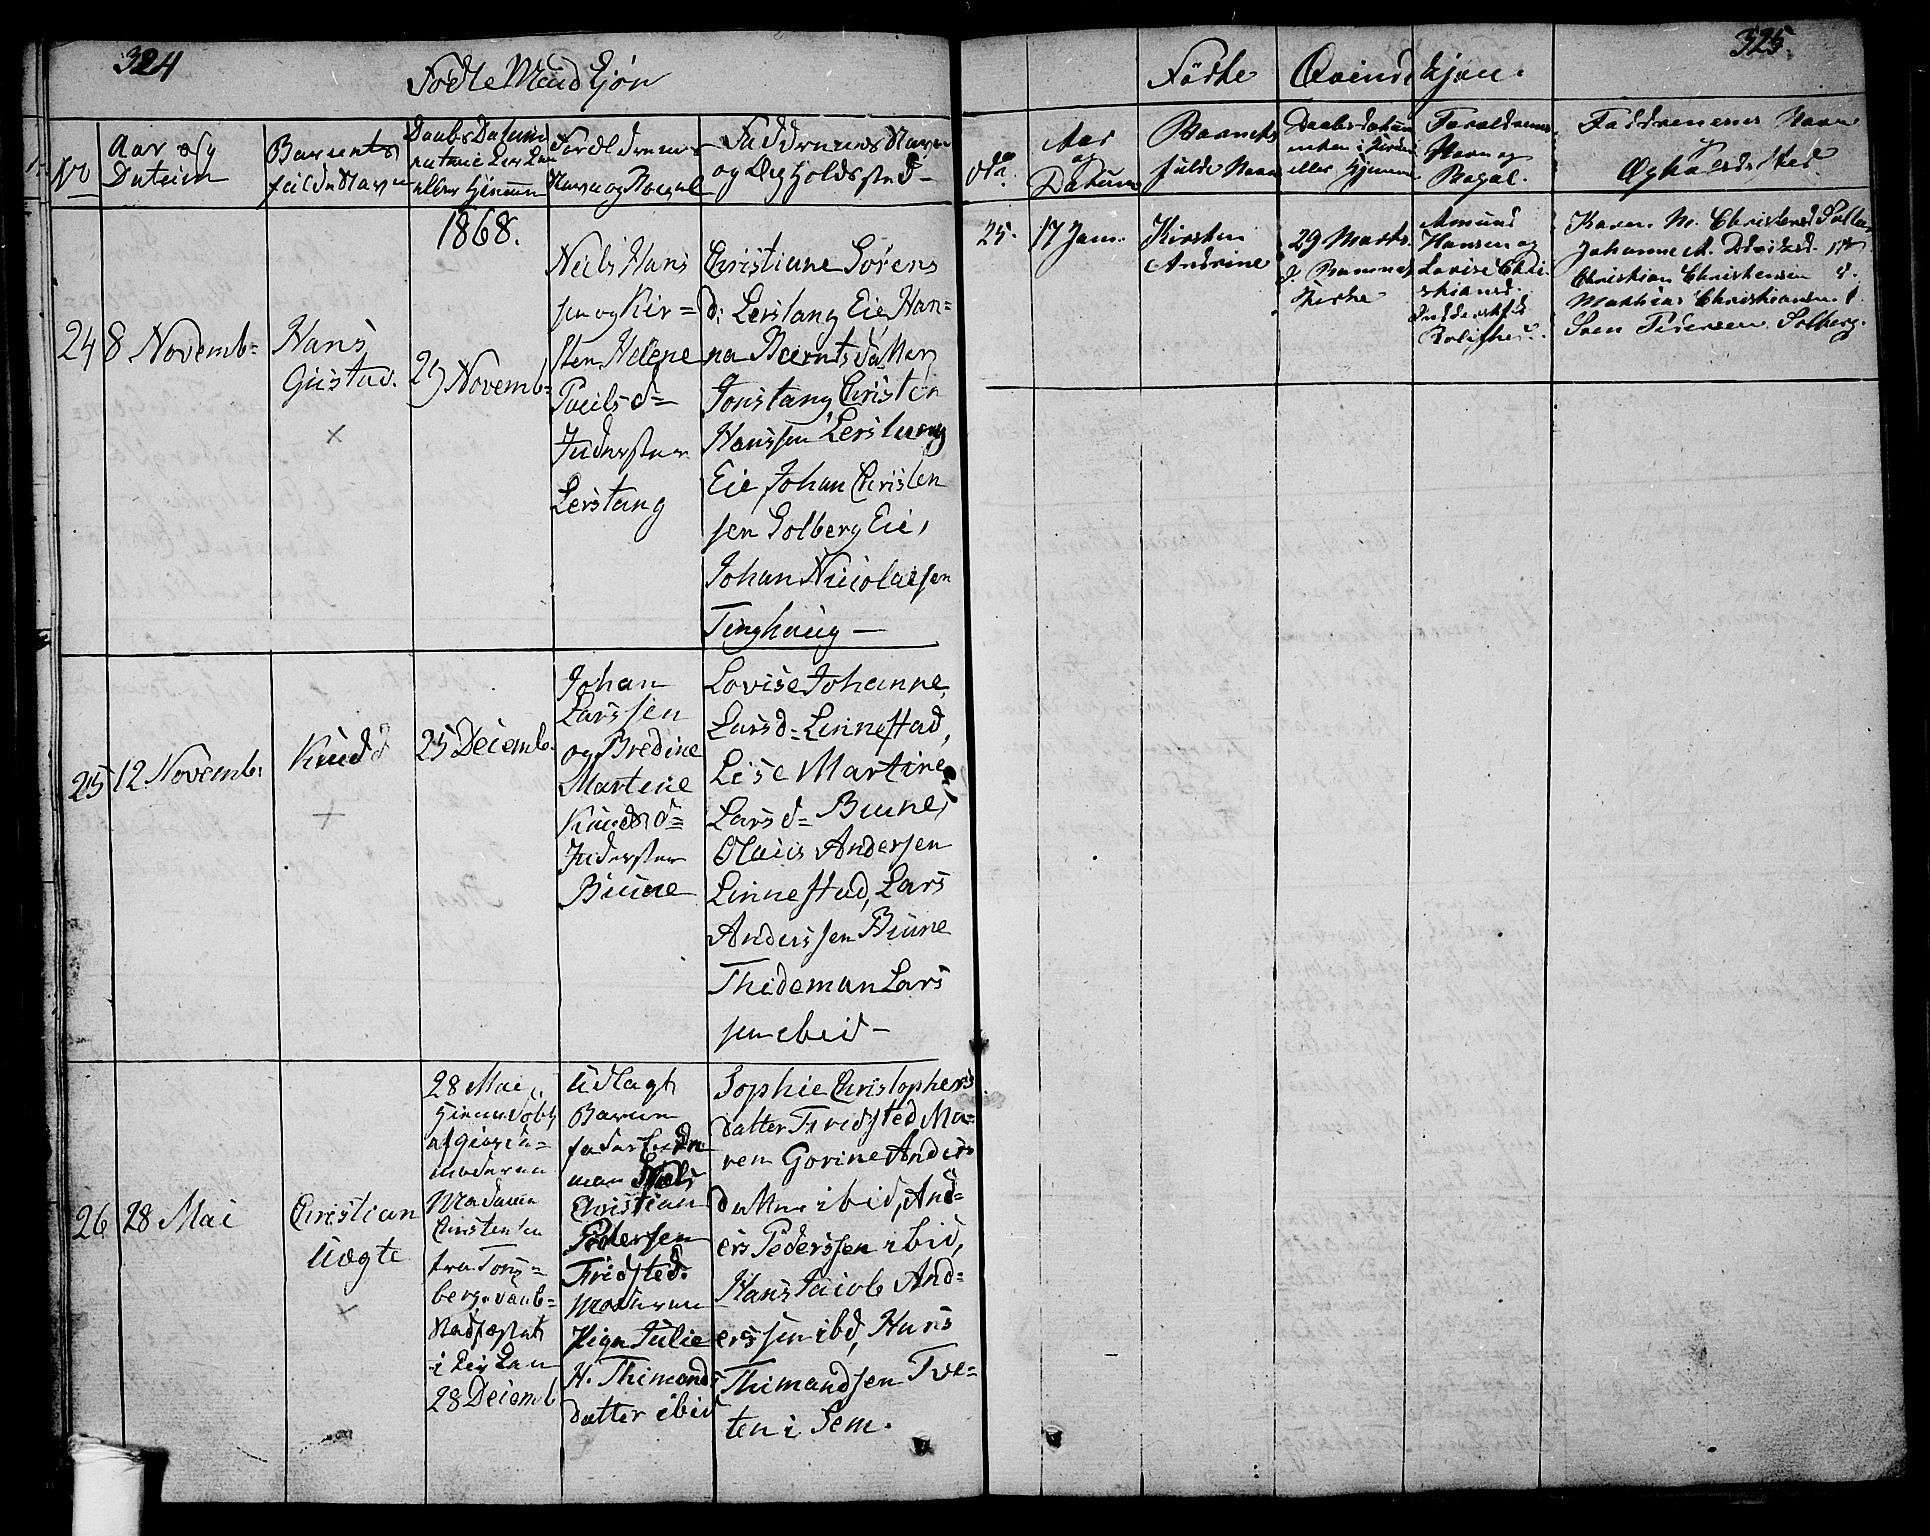 324
Fødte Mandkjøn
No
Aar og
Datum
Barnets
fulde Navn
Daabs Datum
enten i Kirken
eller Hiemme
Forældrenes
Navn og Boepæl
Faddernes Navn
og Ophholdsted
1868.
24
8 Novemb:
Hans
Gustav.
×
29 Novemb:
Niels Hans
sen og Kir=
sten Helene
Poulsd=
Inderster
Lerstang
Christiane Sörens
d: Lerstang Eie Han=
na Berntsdatter
Jonstang Christen
Hanssen Lerstang
Eie Johan Christen
sen Solberg Eie,
Johan Nicolaisen
Tinghaug —
25
12 Novemb:
Knud
×
25 Decemb.
Johan
Larssen
og Bredine
Martine
Knudsd=
Inderster
Buune
Lovise Johanne
Larsd= Linnestad,
Lise Martine
Larsd= Buune,
Olaus Andersen
Linnestad, Lars
Anderssen Buune
Thideman Lars
sen ibid —
26
28 Mai
Christian
Uægte
×
28 Mai
Hiemmedøbt
af Giorde=
moderen
Madame
Christensen
fra Töns=
berg. Daab=
Stadfæstet
i Kirken
28 Decemb
Udlagt
Barne
fader Lærdn
man Niels
Christian
Pedersen
Fridsted.
Moderen
Pige Julie
H. Thimands
datter ibid
Sophie Christophers
datter Fridsted Ma=
ren Gorine Anders
datter ibid, And=
ers Pederssen ibid,
Hans Jacob And=
erssen ibd, Hans
Thimandsen Tve=
ten i Sem.
325.
Födte Qvindekjøn.
Aar
og
Datum
Barnets
fulde Navn
Daabsdatum
enten i Kirken
eller Hjemme
Forældrenes
Navn og
Bopæl.
Faddrenenes Navn
og
Opholdssted.
25.
17 Jan.
Kirsten
Andrine
29 Marts
i Ramnes
Kirke
Amund
Hansen og
Lovise Chri-
stiansd.
Karen M. Christensd Solberg
Johanne A. Davidsd.
Christian Christensen
Mathias Christiansen
Sven Pedersen Solberg.